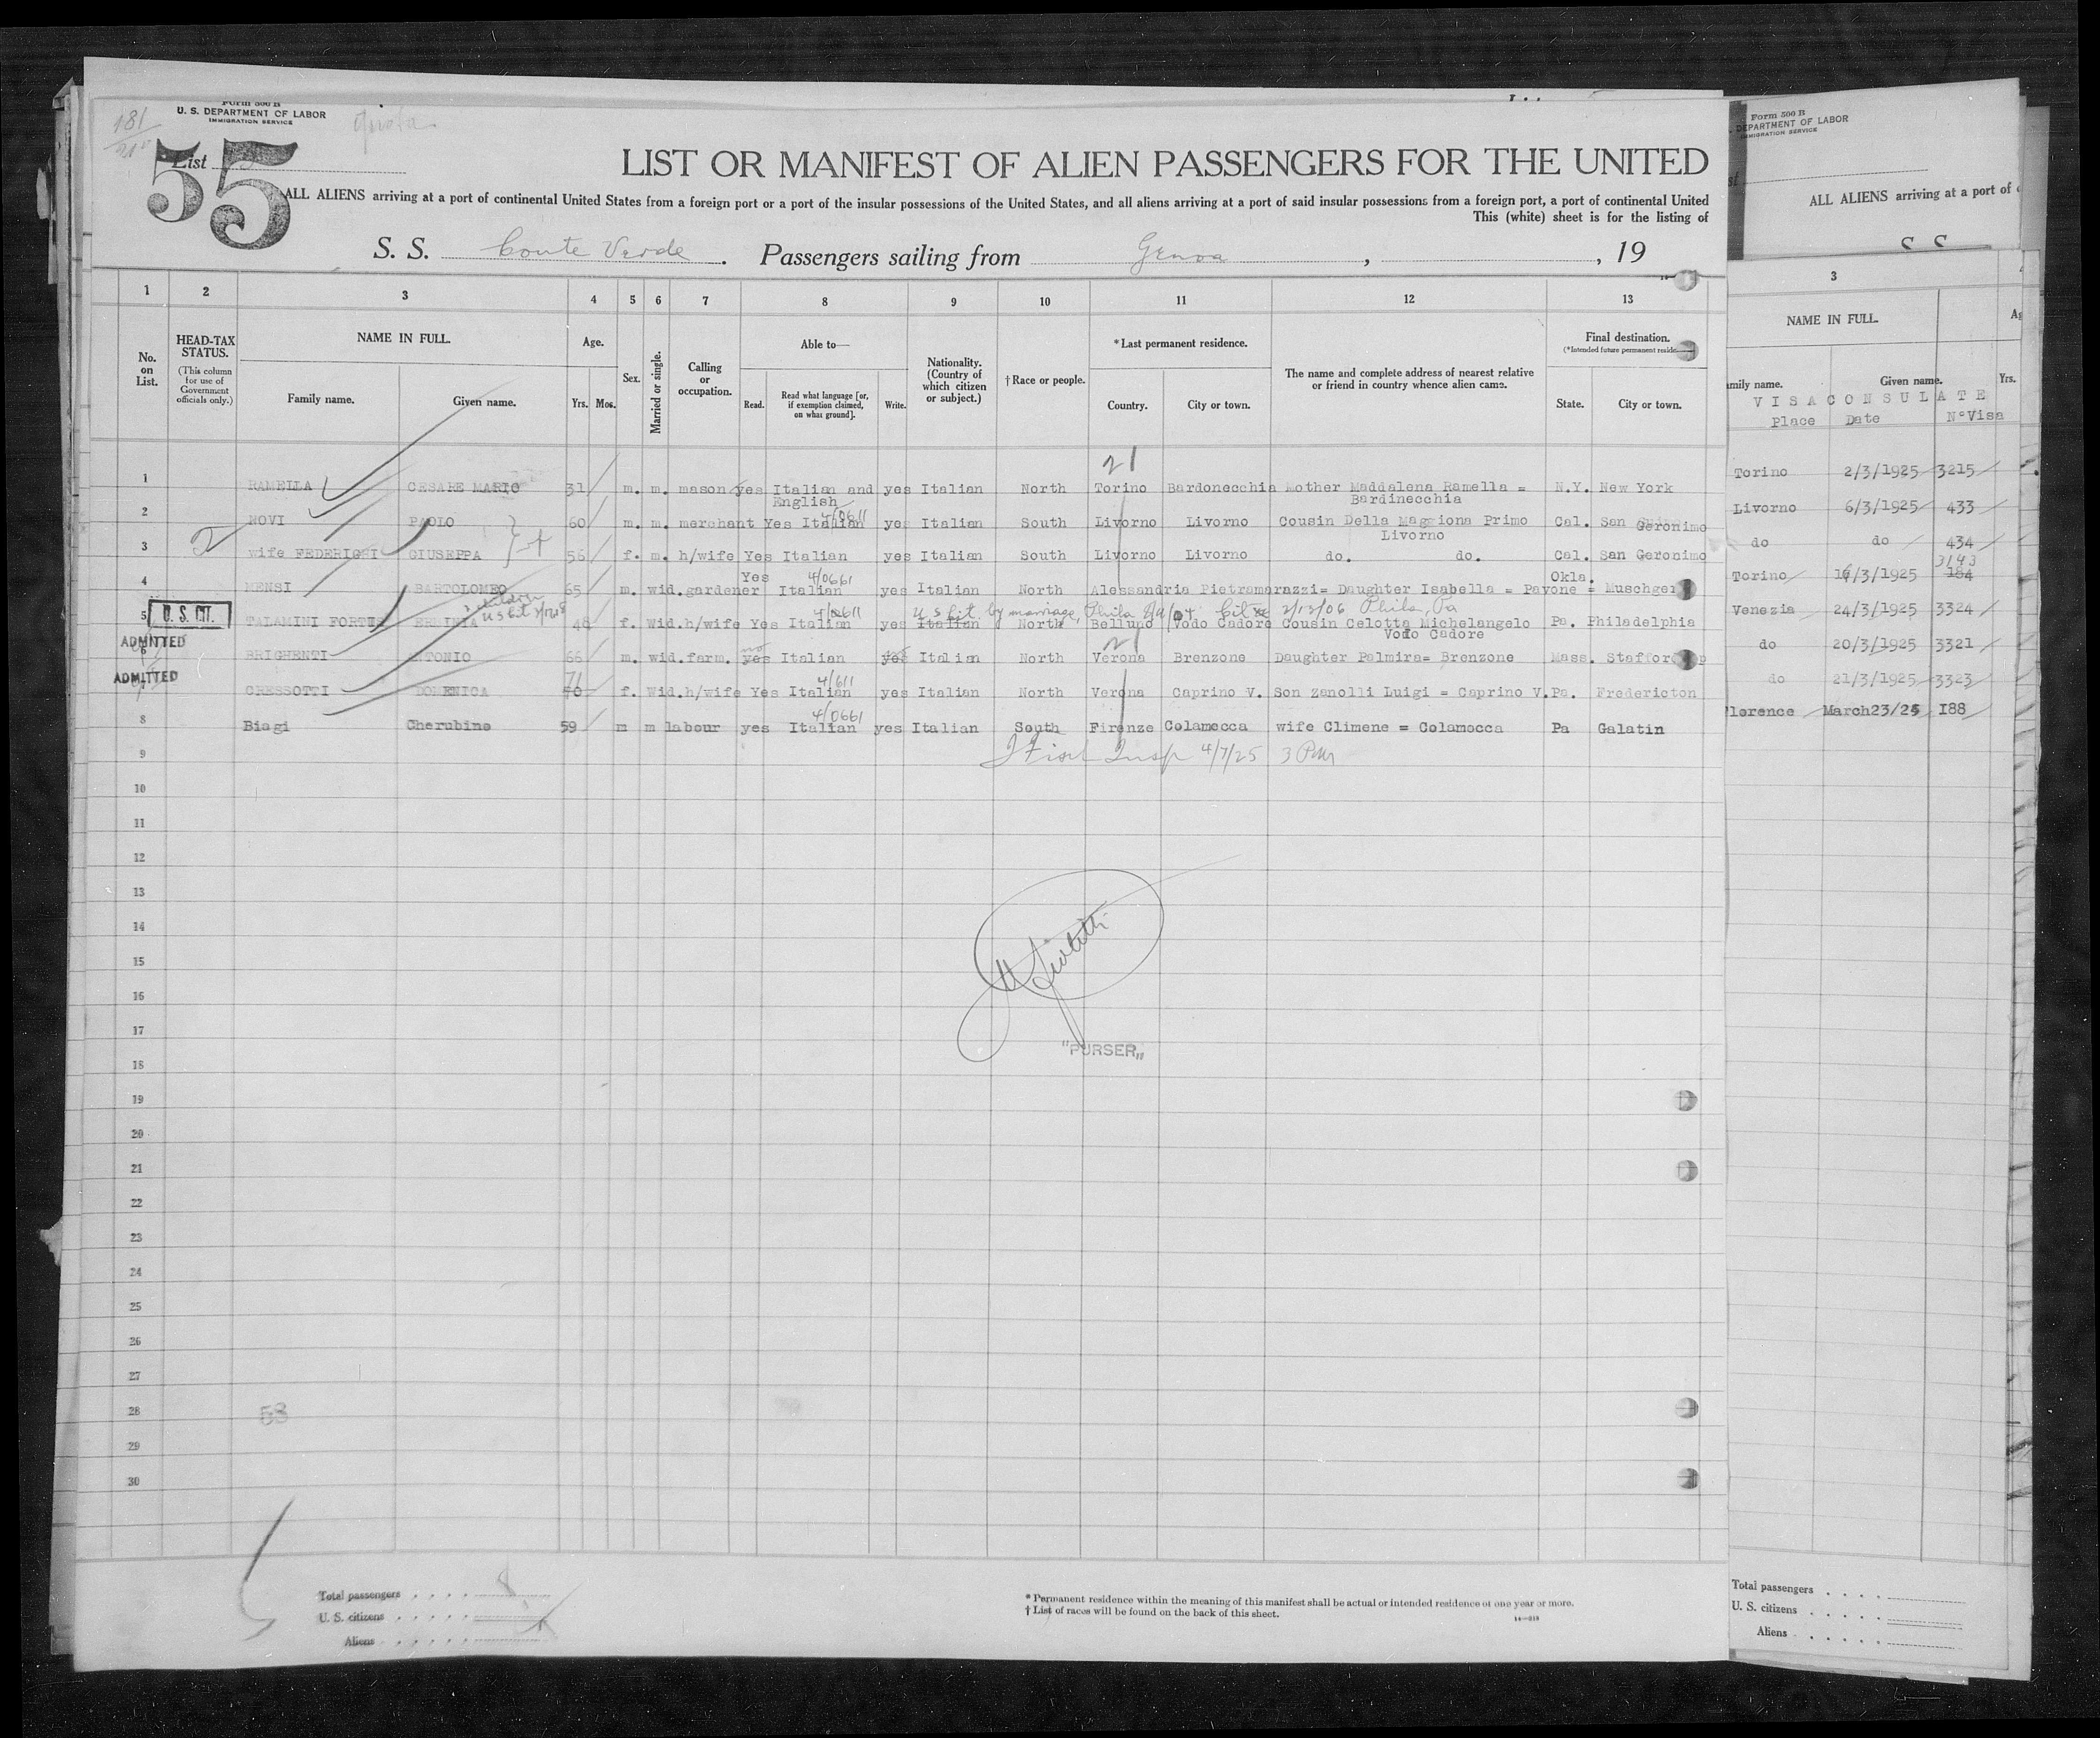 Form 500 B
U. S. DEPARTMENT OF LABOR
IMMIGRATION SERVICE
181
List
55
LIST OR MANIFEST OF ALIEN PASSENGERS FOR THE UNITED
ALL ALIENS arriving at a port of continental United States from a foreign port or a port of the insular possessions of the United States, and all aliens arriving at a port of said insular possessions from a foreign port, a port of continental United
This (white) sheet is for the listing of
S. S. Conte Verde. Passengers sailing from Genoa, , 19
1 2 3 4 5 6 7 8 9 10 11 12 13
No. on List.
HEAD-TAX STATUS.
(This column for use of Government officials only.)
NAME IN FULL.
Family name. Given name.
Age.
Yrs. Mos.
Sex.
Married or single.
Calling or occupation.
Able to—
Read. Read what language [or, if exemption claimed, on what ground]. Write.
Nationality. (Country of which citizen or subject.)
†Race or people.
*Last permanent residence.
Country. City or town.
The name and complete address of nearest relative or friend in country whence alien came.
Final destination.
(*Intended future permanent reside
State. City or town.
21
1 RAMELLA CESARE MARIO 31 m. m. mason yes Italian and English yes Italian North Torino Bardonecchia Mother Maddalena Ramella = Bardinecchia N.Y. New York
2 NOVI PAOLO 60 m. m. merchant Yes Italian 4/0611 yes Italian South Livorno Livorno Cousin Della Maggiona Primo Livorno Cal. San Geronimo
3 wife FEDERIGHI GIUSEPPA 56 f. m. h/wife Yes Italian yes Italian South Livorno Livorno do. do. Cal. San Geronimo
4 MENSI BARTOLOMEO 65 m. wid. gardener Yes Italian 4/0661 yes Italian North Alessandria Pietramarazzi= Daughter Isabella = Pavone = Okla. Muschger
U S Cit. by marriage, Phila 2/13/06 Phila, Pa
5 U. S. CIT. TALAMINI FORTUE ERMINIA 48 f. wid. h/wife Yes Italian 4/0611 yes Italian North Belluno Vodo Cadore Cousin Celotta Michelangelo Vodo Cadore Pa. Philadelphia
ADMITTED
BRIGHENTI ANTONIO 66 m. wid. farm. yes no Italian yes no Italian North Verona Brenzone Daughter Palmira= Brenzone Mass. Stafford
21
ADMITTED
CRESSOTTI DOMENICA 70 71 f. wid. h/wife Yes Italian 4/611 yes Italian North Verona Caprino V. Son Zanolli Luigi = Caprino V. Pa. Fredericton
8 Biagi Cherubino 59 m m labour yes Italian 4/0661 yes Italian South Firenze Colamocca wife Climene = Colamocca Pa Galatin
9 Insp 4/7/25 3 PM
10
11
12
13
14
15
16
17
"PURSER„
18
19
20
21
22
23
24
25
26
27
28 53
29
30
Total passengers . . . . 8
U. S. citizens . . . . .
Aliens . . . . .
* Permanent residence within the meaning of this manifest shall be actual or intended residence of one year or more.
† List of races will be found on the back of this sheet.
14—319
Form 500 B
DEPARTMENT OF LABOR
IMMIGRATION SERVICE
ALL ALIENS arriving at a port of
S S
3
NAME IN FULL.
amily name. Given name. Yrs.
VISA CONSULATE
Place Date N°Visa
Torino 2/3/1925 3215
Livorno 6/3/1925 433
do do 434
Torino 16/3/1925 184 3143
Venezia 24/3/1925 3324
do 20/3/1925 3321
do 21/3/1925 3323
lorence March23/25 I88
Total passengers . . . .
U. S. citizens . . . . .
Aliens . . . . .